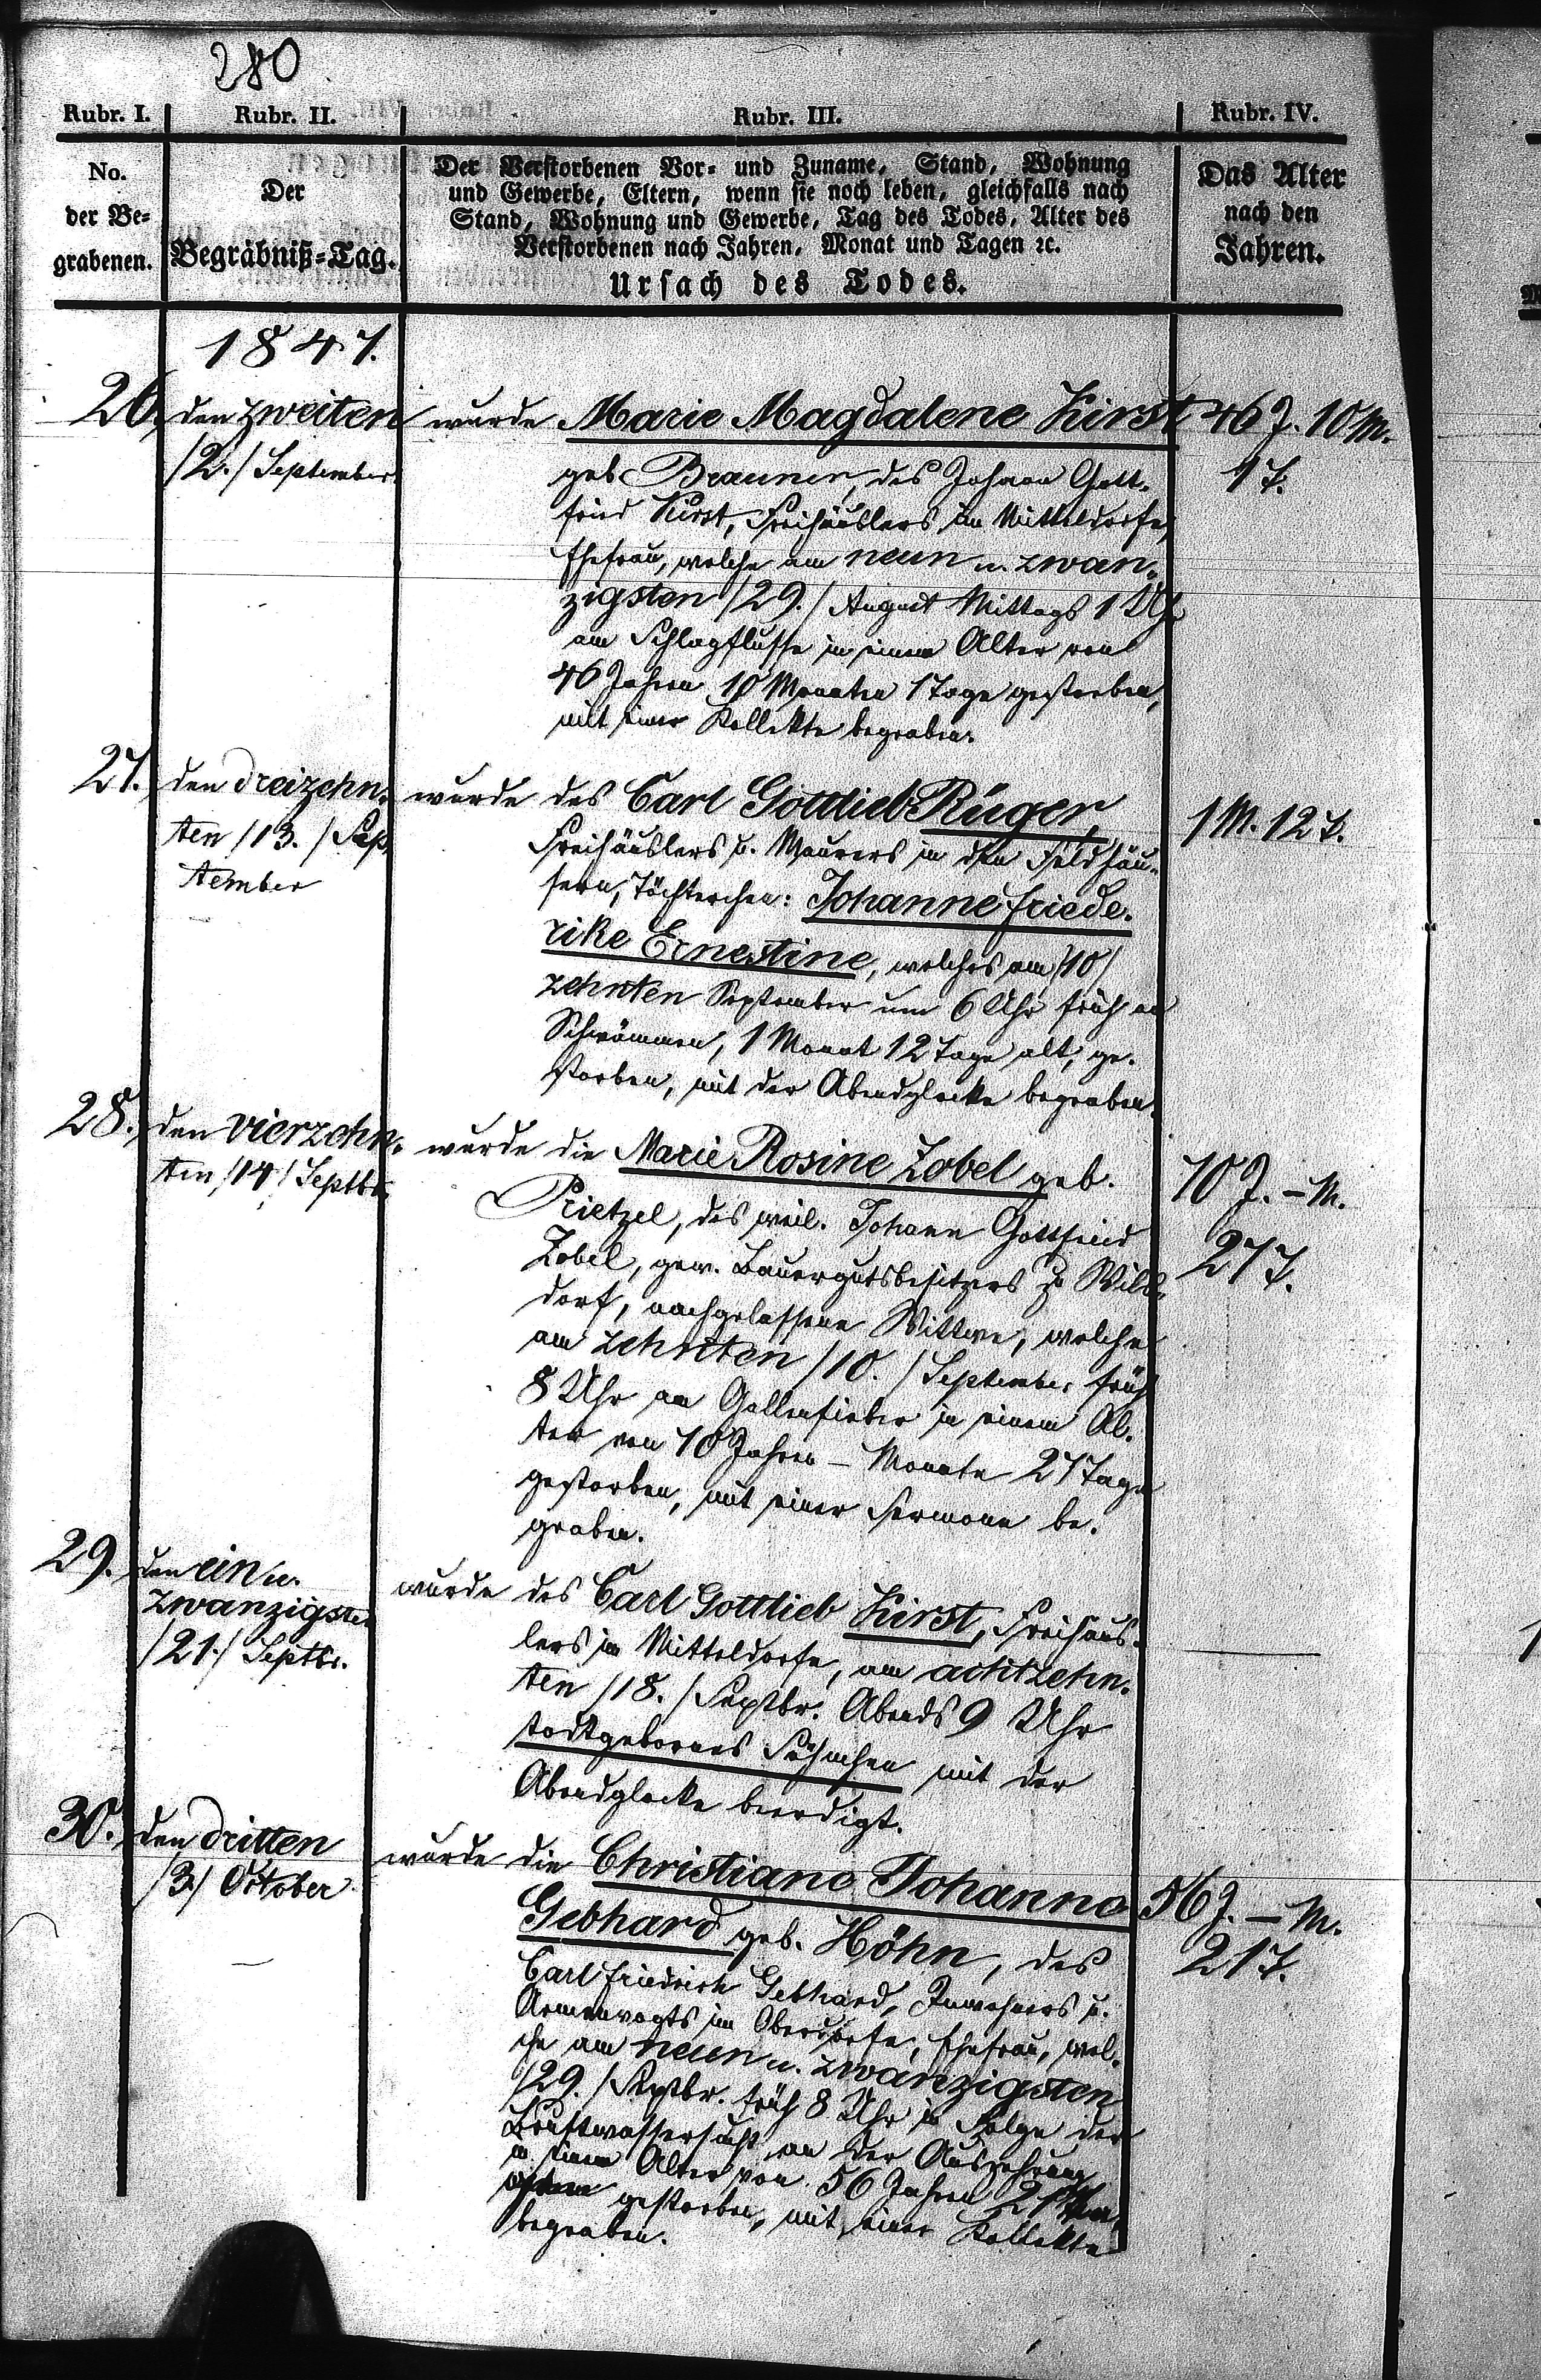 280
Rubr. I. Rubr. II. Rubr. III. Rubr. IV.
No.
der Be=
grabenen.
Der
Begräbniß=Tag.
Der Verstorbenen Vor= und Zuname, Stand, Wohnung
und Gewerbe, Eltern, wenn sie noch leben, gleichfalls nach
Stand, Wohnung und Gewerbe, Tag des Todes, Alter des
Verstorbenen nach Jahren, Monat und Tagen ꝛc.
Ursach des Todes.
Das Alter
nach den
Jahren.
1847.
26. den zweiten wurde Marie Magdalene Kirst 46 J. 10 M.
/2./ September geb. Brauner, des Johann Gott= 1 T.
fried Kirst, Freihäuslers im Mitteldorfe,
Ehefrau, welche am neun u. zwan=
zigsten /29./ August Mittags 1 Uhr
am Schlagflusse in einem Alter von
46 Jahren 10 Monaten 1 Tage gestorben,
mit einer Kollekte begraben.
27. den dreizehn= wurde des Carl Gottlieb Rüger, 1 M. 12 T.
ten /13./ Sep= Freihäuslers u. Maurers in den Feldhäu=
tember sern, Töchterchen: Johanne Friede=
rike Ernestine, welches am /10/
zehnten September um 6 Uhr früh an
Schwämmen, 1 Monat 12 Tage alt, ge=
storben, mit der Abendglocke begraben.
28. den vierzehn= wurde die Marie Rosine Zobel geb. 70 J. – M.
ten /14/ Septbr. Prietzel, des weil. Johann Gottfried 27 T.
Zobel, gew. Bauergutsbesitzers zu
dorf, nachgelassene Wittwe, welche
am zehnten /10./ September früh
8 Uhr am Gallenfieber in einem Al=
ter von 70 Jahren – Monate 27 Tage
gestorben, mit einer Sermone be=
graben.
29. den ein u. wurde des Carl Gottlieb Kirst, Freihäus=
zwanzigsten lers im Mitteldorfe, am achtzehn=
/21./ Septbr. ten /18./ Septbr. Abends 9 Uhr
todtgebornes Söhnchen mit der
Abendglocke beerdigt.
30. den dritten wurde die Christiane Johanne 56 J. – M.
/3./ October Gebhard geb. Höhn, des 21 T.
Carl Friedrich Gebhard, Inwohners u.
Armenvogts im Oberdorfe, Ehefrau, wel=
che am neun u. zwanzigsten
/29./ Septbr. früh 8 Uhr in Folge der
Brustwassersucht an der Auszehrung
in einem Alter von 56 Jahren 21
gestorben, mit einer Kollekte
begraben.